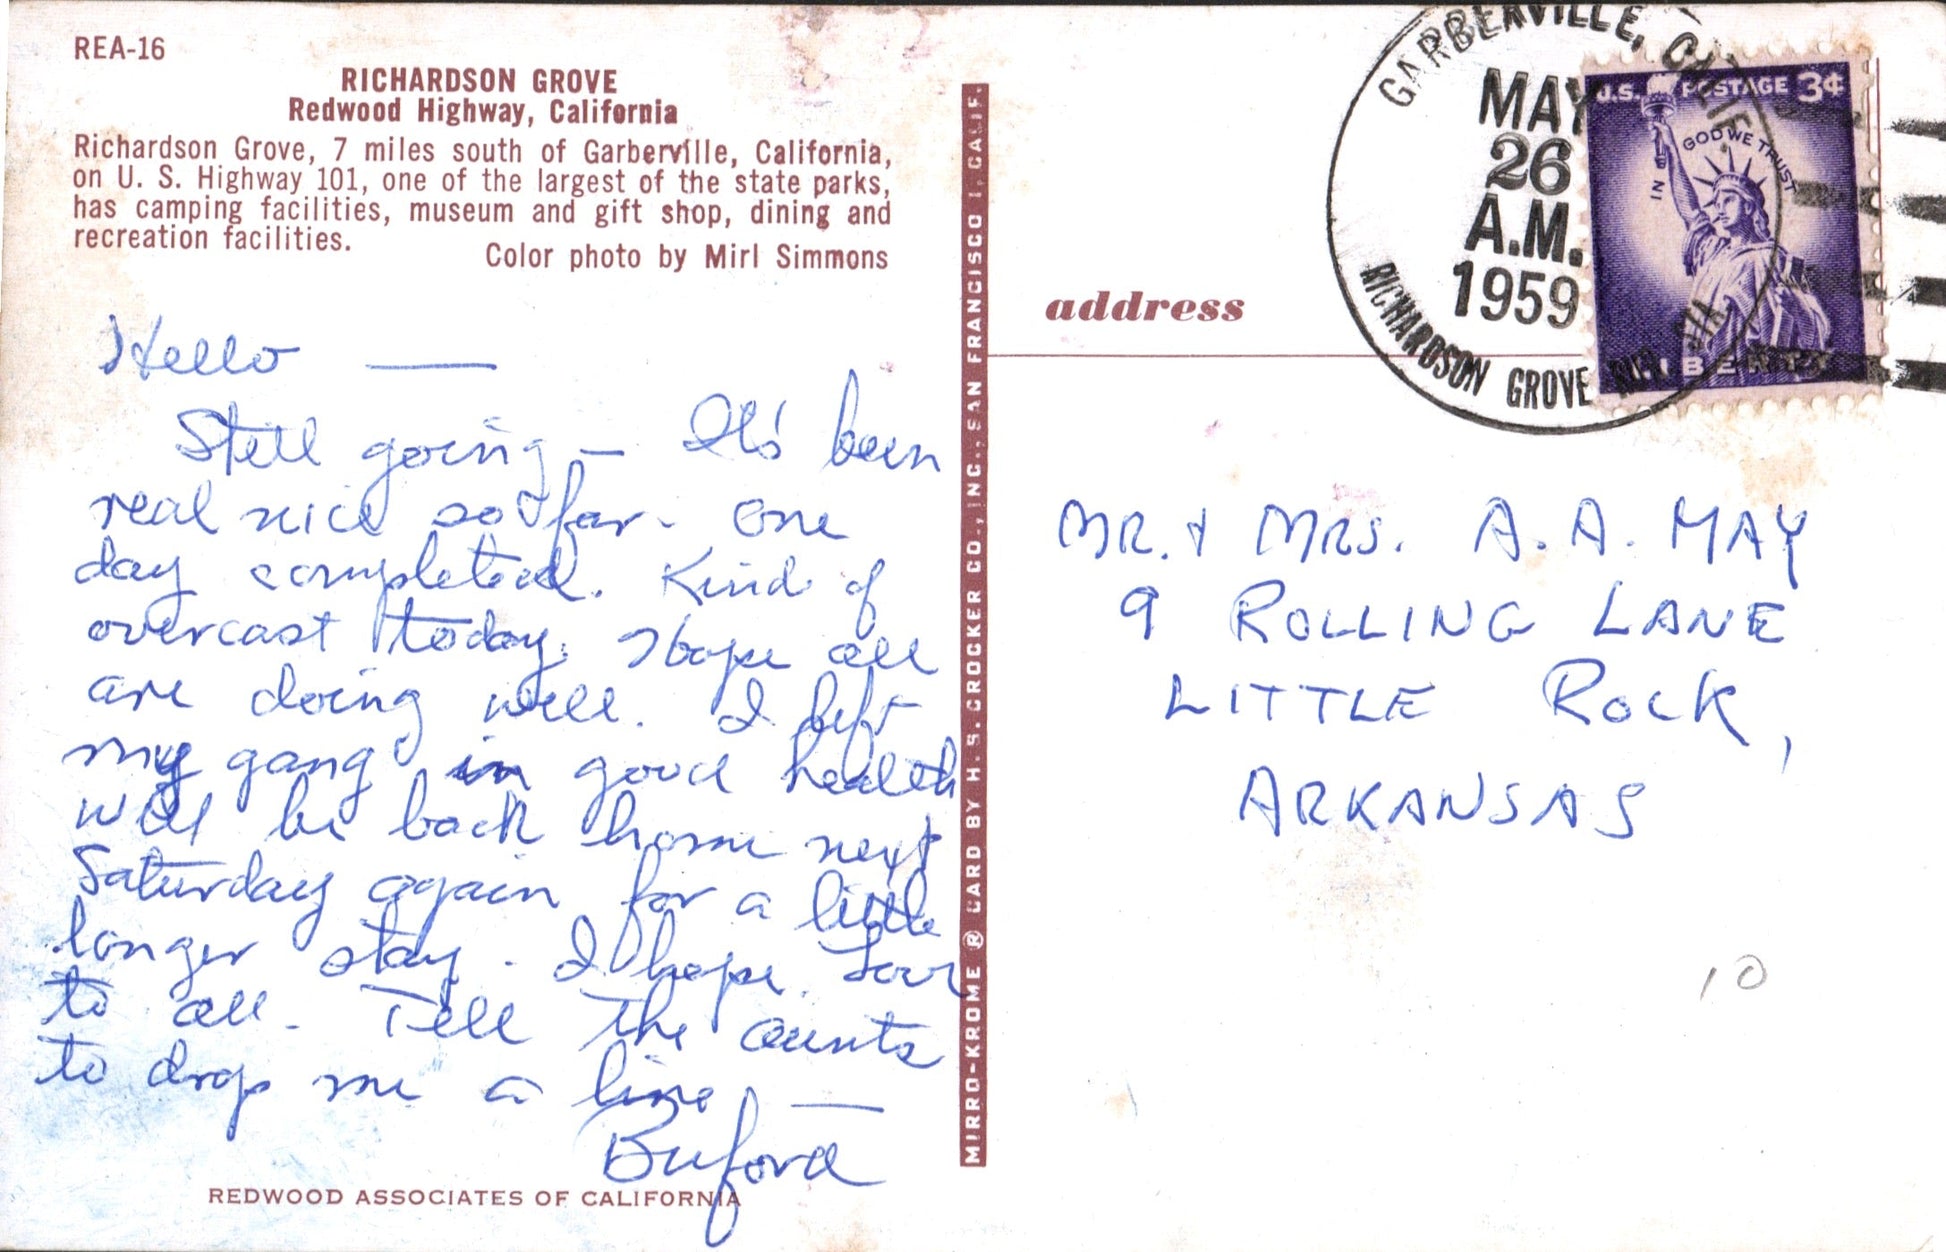 REA-16
RICHARDSON GROVE
Redwood Highway, California
Richardson Grove, 7 miles south of Garberville, California,
on U. S. Highway 101, one of the largest of the state parks,
has camping facilities, museum and gift shop, dining and
recreation facilities.
Color photo by Mirl Simmons
Hello —
Still going – It's been
real nice so far. One
day completed. Kind of
overcast today. Hope all
are doing well. I left
my gang in good health
will be back home next
Saturday again for a little
longer stay. I hope. Love
to all. Tell the aunts
to drop me a line —
Buford
REDWOOD ASSOCIATES OF CALIFORNIA
MIRRO-KROME ® CARD BY H. S. CROCKER CO., INC., SAN FRANCISCO 1, CALIF.
address
GARBERVILLE, CALIF.
MAY
26
A.M.
1959
RICHARDSON GROVE RUR. STA.
U.S. POSTAGE 3¢
IN GOD WE TRUST
LIBERTY
MR. & MRS. A. A. MAY
9 ROLLING LANE
LITTLE ROCK,
ARKANSAS
10